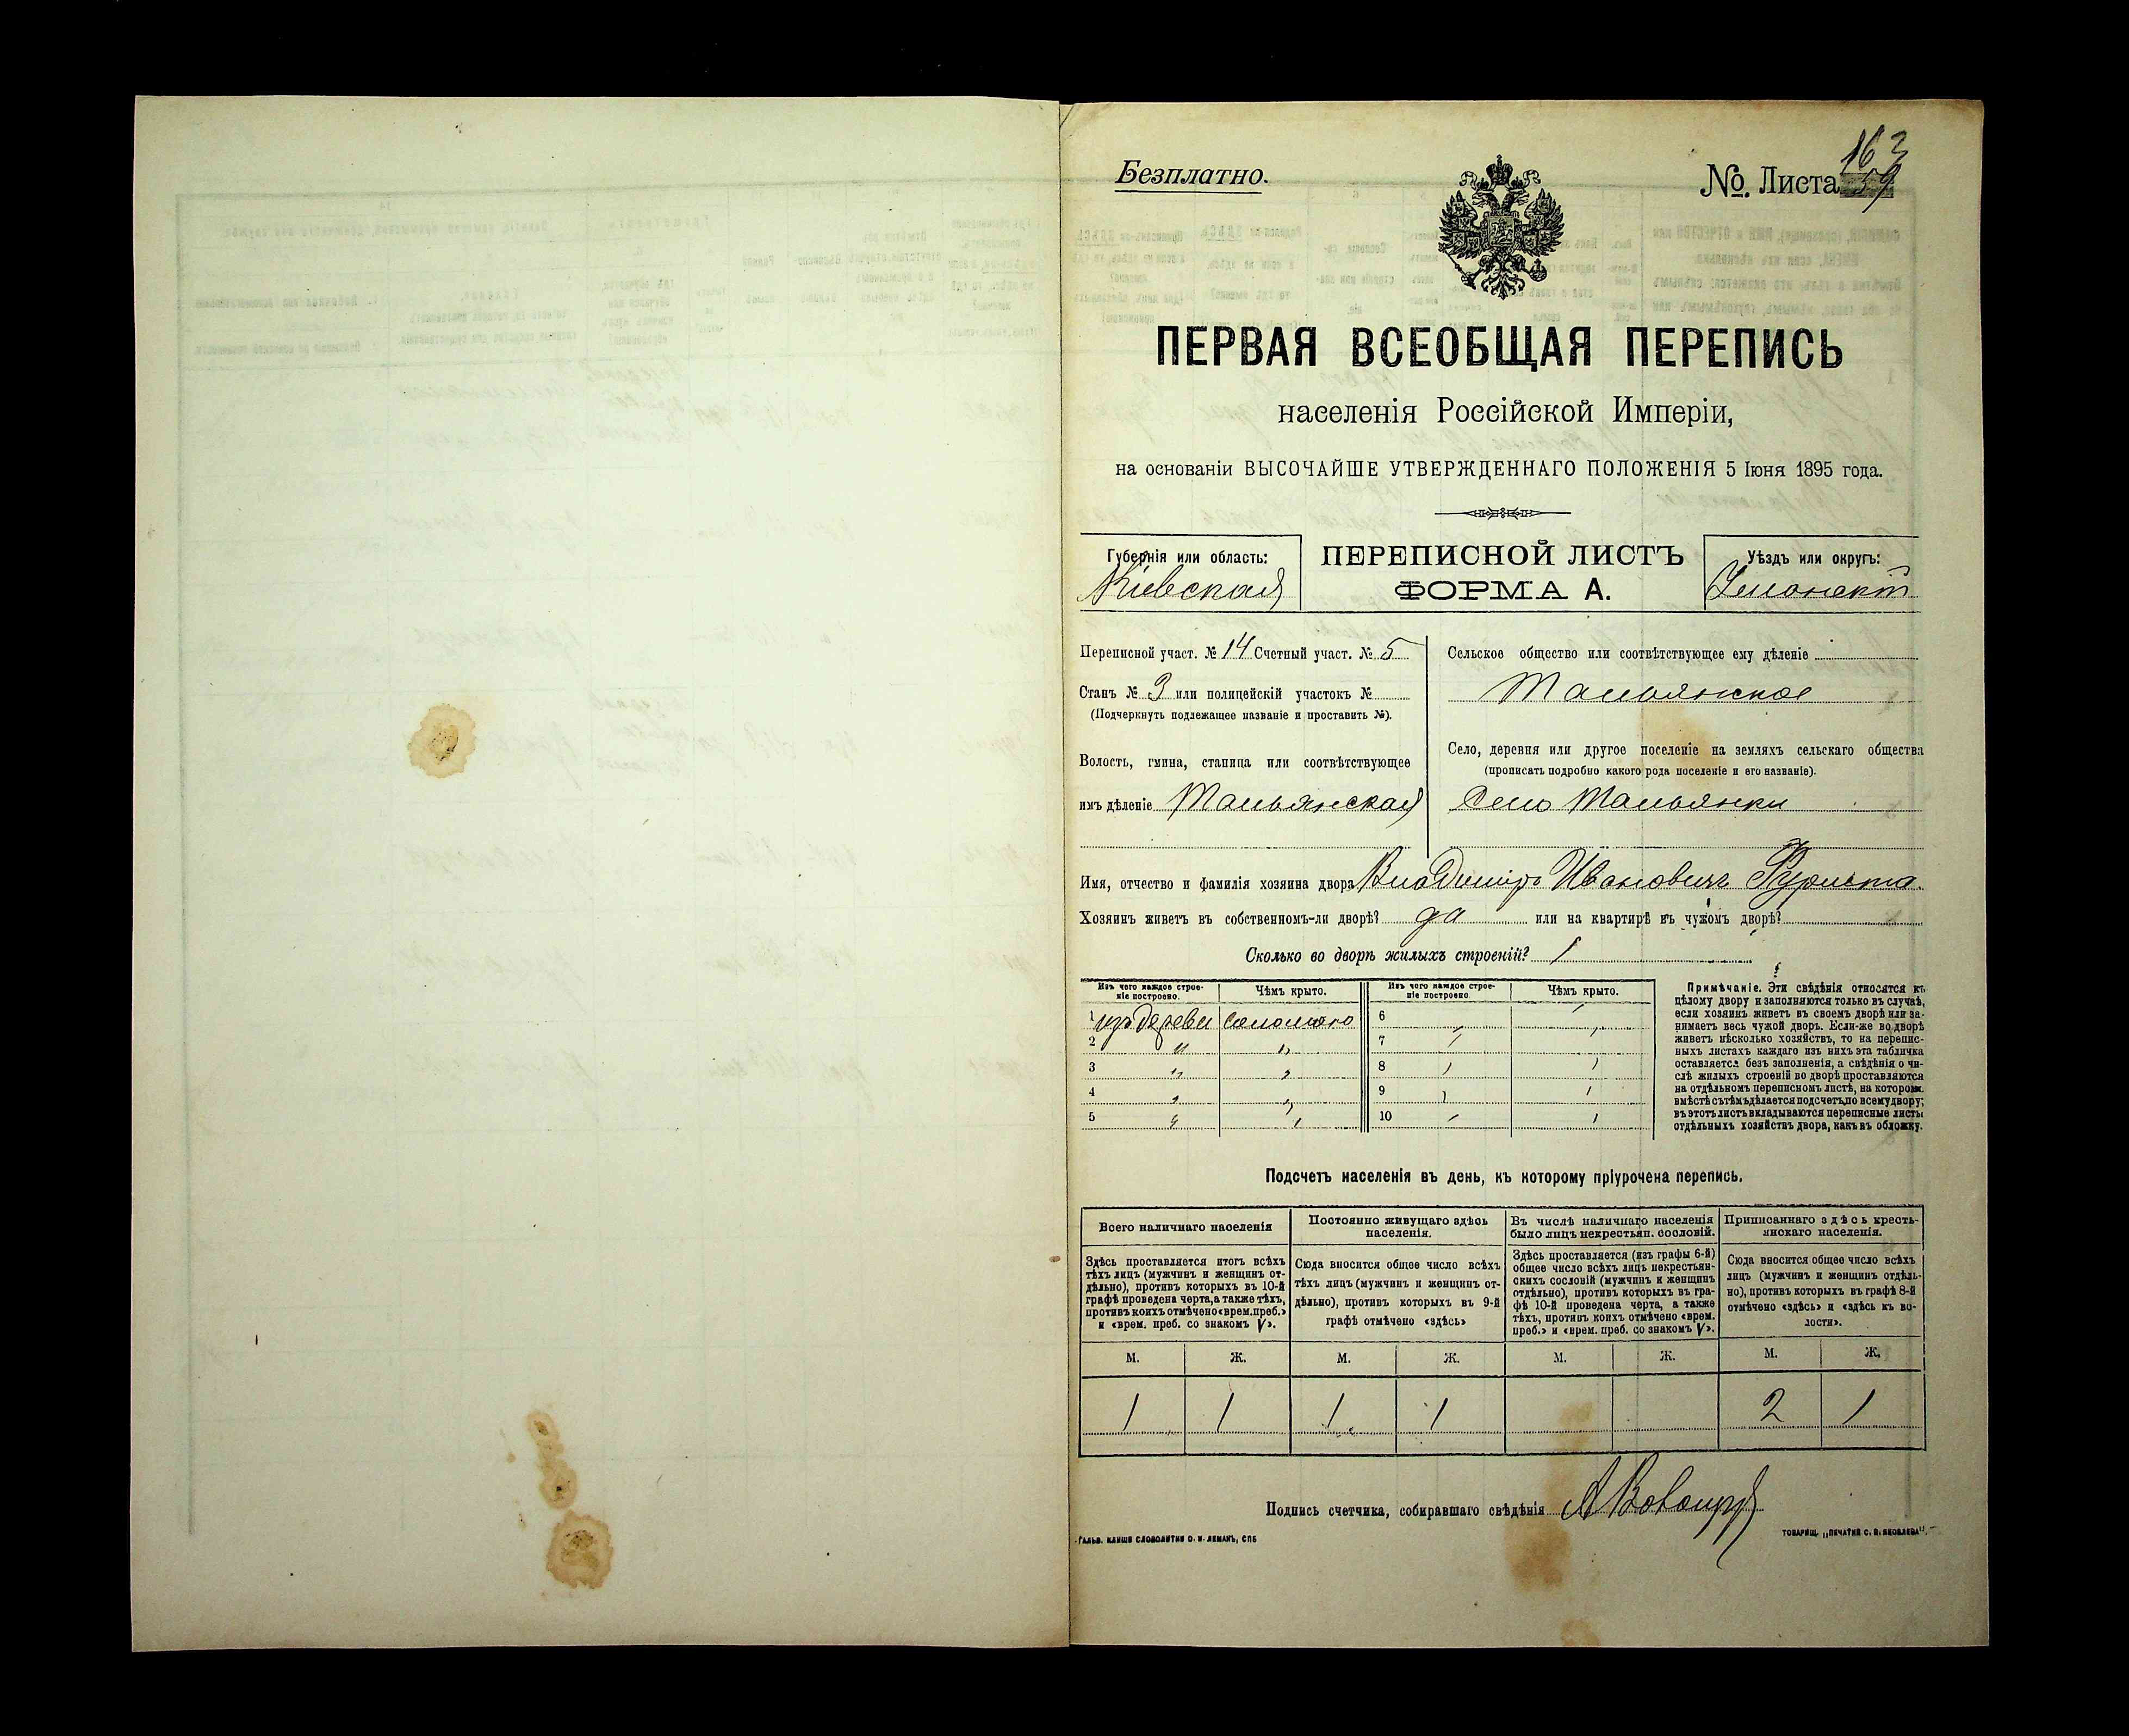 Безплатно.
№ Листа
163
59
ПЕРВАЯ ВСЕОБЩАЯ ПЕРЕПИСЬ
населенія Россійской Имперіи,
на основаніи ВЫСОЧАЙШЕ УТВЕРЖДЕННАГО ПОЛОЖЕНІЯ 5 Іюня 1895 года.
Губернія или область:
Кіевская
ПЕРЕПИСНОЙ ЛИСТЪ
ФОРМА А.
Уѣздъ или округъ:
Уманскій
Переписной участ. № 14 Счетный участ. № 5
Станъ № 3 или полицейскій участокъ №
(Подчеркнуть подлежащее названіе и проставить №).
Волость, гмина, станица или соотвѣтствующее
имъ дѣленіе Тальянская
Сельское общество или соотвѣтствующее ему дѣленіе
Тальянское
Село, деревня или другое поселеніе на земляхъ сельскаго общества
(прописать подробно какого рода поселеніе и его названіе).
Село Тальянки
Имя, отчество и фамилія хозяина двора Владиміръ Ивановичъ
Хозяинъ живетъ въ собственномъ-ли дворѣ? да или на квартирѣ въ чужомъ дворѣ?
Сколько во дворѣ жилыхъ строеній? 1
Изъ чего каждое строе-
ніе построено.
Чѣмъ крыто.
Изъ чего каждое строе-
ніе построено.
Чѣмъ крыто.
1 изъ дерева соломою 6
2 " " 7
3 " " 8
4 " " 9
5 " " 10
Примѣчаніе. Эти свѣдѣнія относятся къ
цѣлому двору и заполняются только въ случаѣ,
если хозяинъ живетъ въ своемъ дворѣ или за-
нимаетъ весь чужой дворъ. Если-же во дворѣ
живетъ нѣсколько хозяйствъ, то на перепис-
ныхъ листахъ каждаго изъ нихъ эта табличка
оставляется безъ заполненія, а свѣдѣнія о чи-
слѣ жилыхъ строеній во дворѣ проставляются
на отдѣльномъ переписномъ листѣ, на которомъ
вмѣстѣ съ тѣмъ дѣлается подсчетъ по всему двору;
въ этотъ листъ вкладываются переписные листы
отдѣльныхъ хозяйствъ двора, какъ въ обложку.
Подсчетъ населенія въ день, къ которому пріурочена перепись.
Всего наличнаго населенія
Здѣсь проставляется итогъ всѣхъ
тѣхъ лицъ (мужчинъ и женщинъ от-
дѣльно), противъ которыхъ въ 10-й
графѣ проведена черта, а также тѣхъ,
противъ коихъ отмѣчено «врем. преб.»
и «врем. преб. со знакомъ V».
Постоянно живущаго здѣсь
населенія.
Сюда вносится общее число всѣхъ
тѣхъ лицъ (мужчинъ и женщинъ от-
дѣльно), противъ которыхъ въ 9-й
графѣ отмѣчено «здѣсь»
Въ числѣ наличнаго населенія
было лицъ некрестьян. сословій.
Здѣсь проставляется (изъ графы 6-й)
общее число всѣхъ лицъ некрестьян-
скихъ сословій (мужчинъ и женщинъ
отдѣльно), противъ которыхъ въ гра-
фѣ 10-й проведена черта, а также
тѣхъ, противъ коихъ отмѣчено «врем.
преб.» и «врем. преб. со знакомъ V».
Приписаннаго здѣсь кресть-
янскаго населенія.
Сюда вносится общее число всѣхъ
лицъ (мужчинъ и женщинъ отдѣль-
но), противъ которыхъ въ графѣ 8-й
отмѣчено «здѣсь» и «здѣсь къ во-
лости».
М. Ж. М. Ж. М. Ж. М. Ж.
1 1 1 1 2 1
Подпись счетчика, собиравшаго свѣдѣнія
ГАЛЬВ. КЛИШЕ СЛОВОЛИТНИ О. И. ЛЕМАНЪ, СПБ
ТОВАРИЩ. „ПЕЧАТНЯ С. П. ЯКОВЛЕВА".